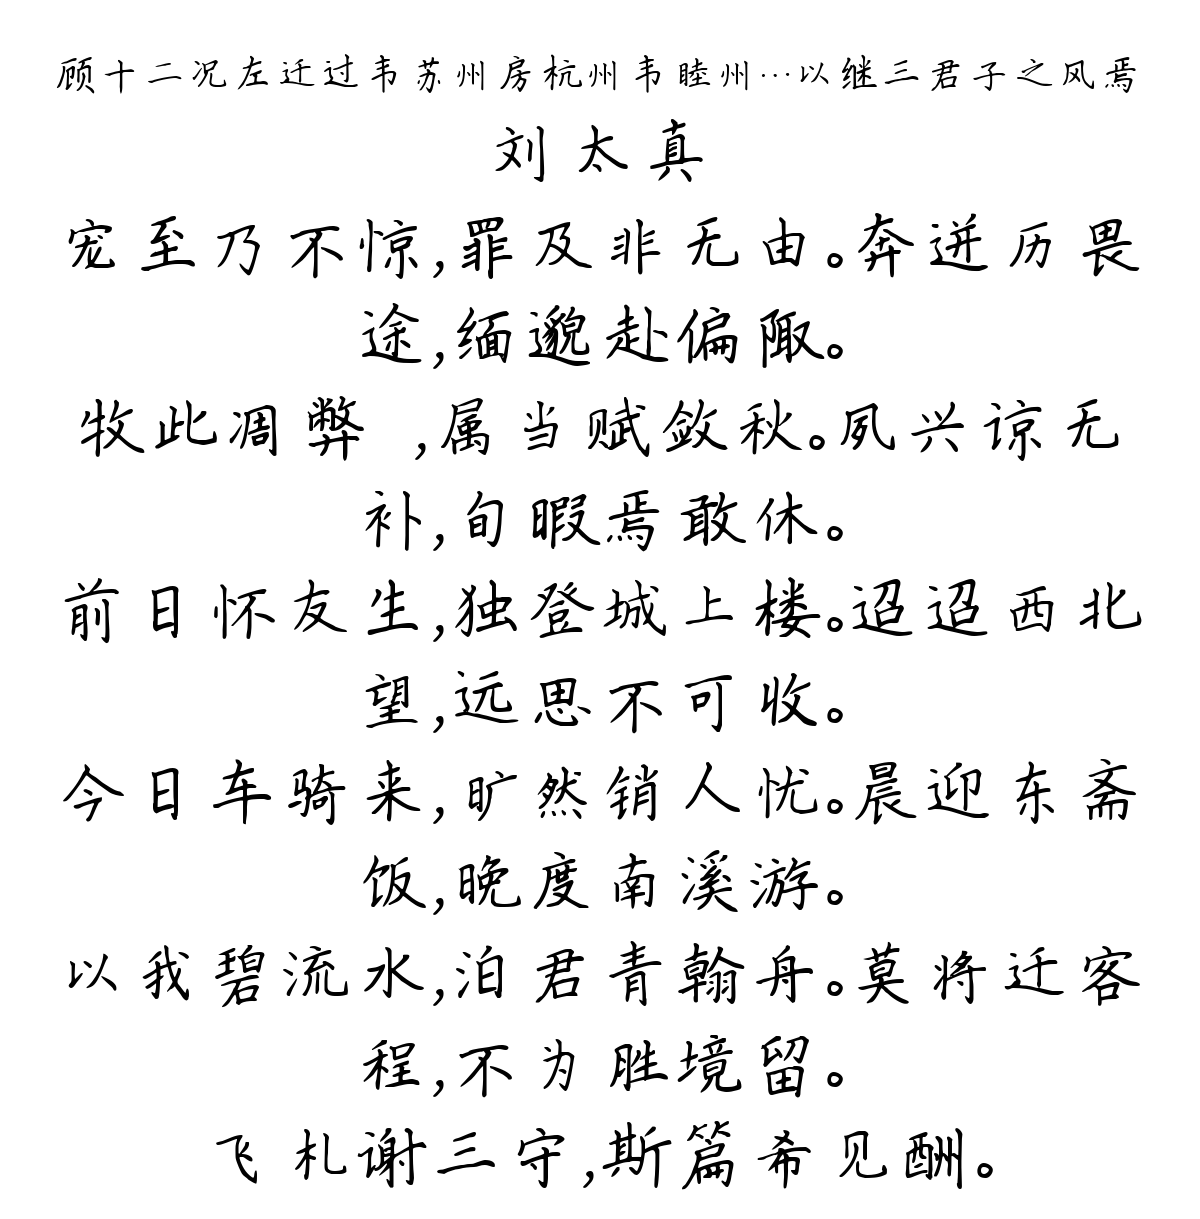 顾十二况左迁过韦苏州房杭州韦睦州…以继三君子之风焉
刘太真
宠至乃不惊,罪及非无由。奔迸历畏
途,缅邈赴偏陬。
牧此凋弊 ,属当赋敛秋。夙兴谅无
补,旬暇焉敢休。
前日怀友生,独登城上楼。迢迢西北
望,远思不可收。
今日车骑来,旷然销人忧。晨迎东斋
饭,晚度南溪游。
以我碧流水,泊君青翰舟。莫将迁客
程,不为胜境留。
飞札谢三守,斯篇希见酬。